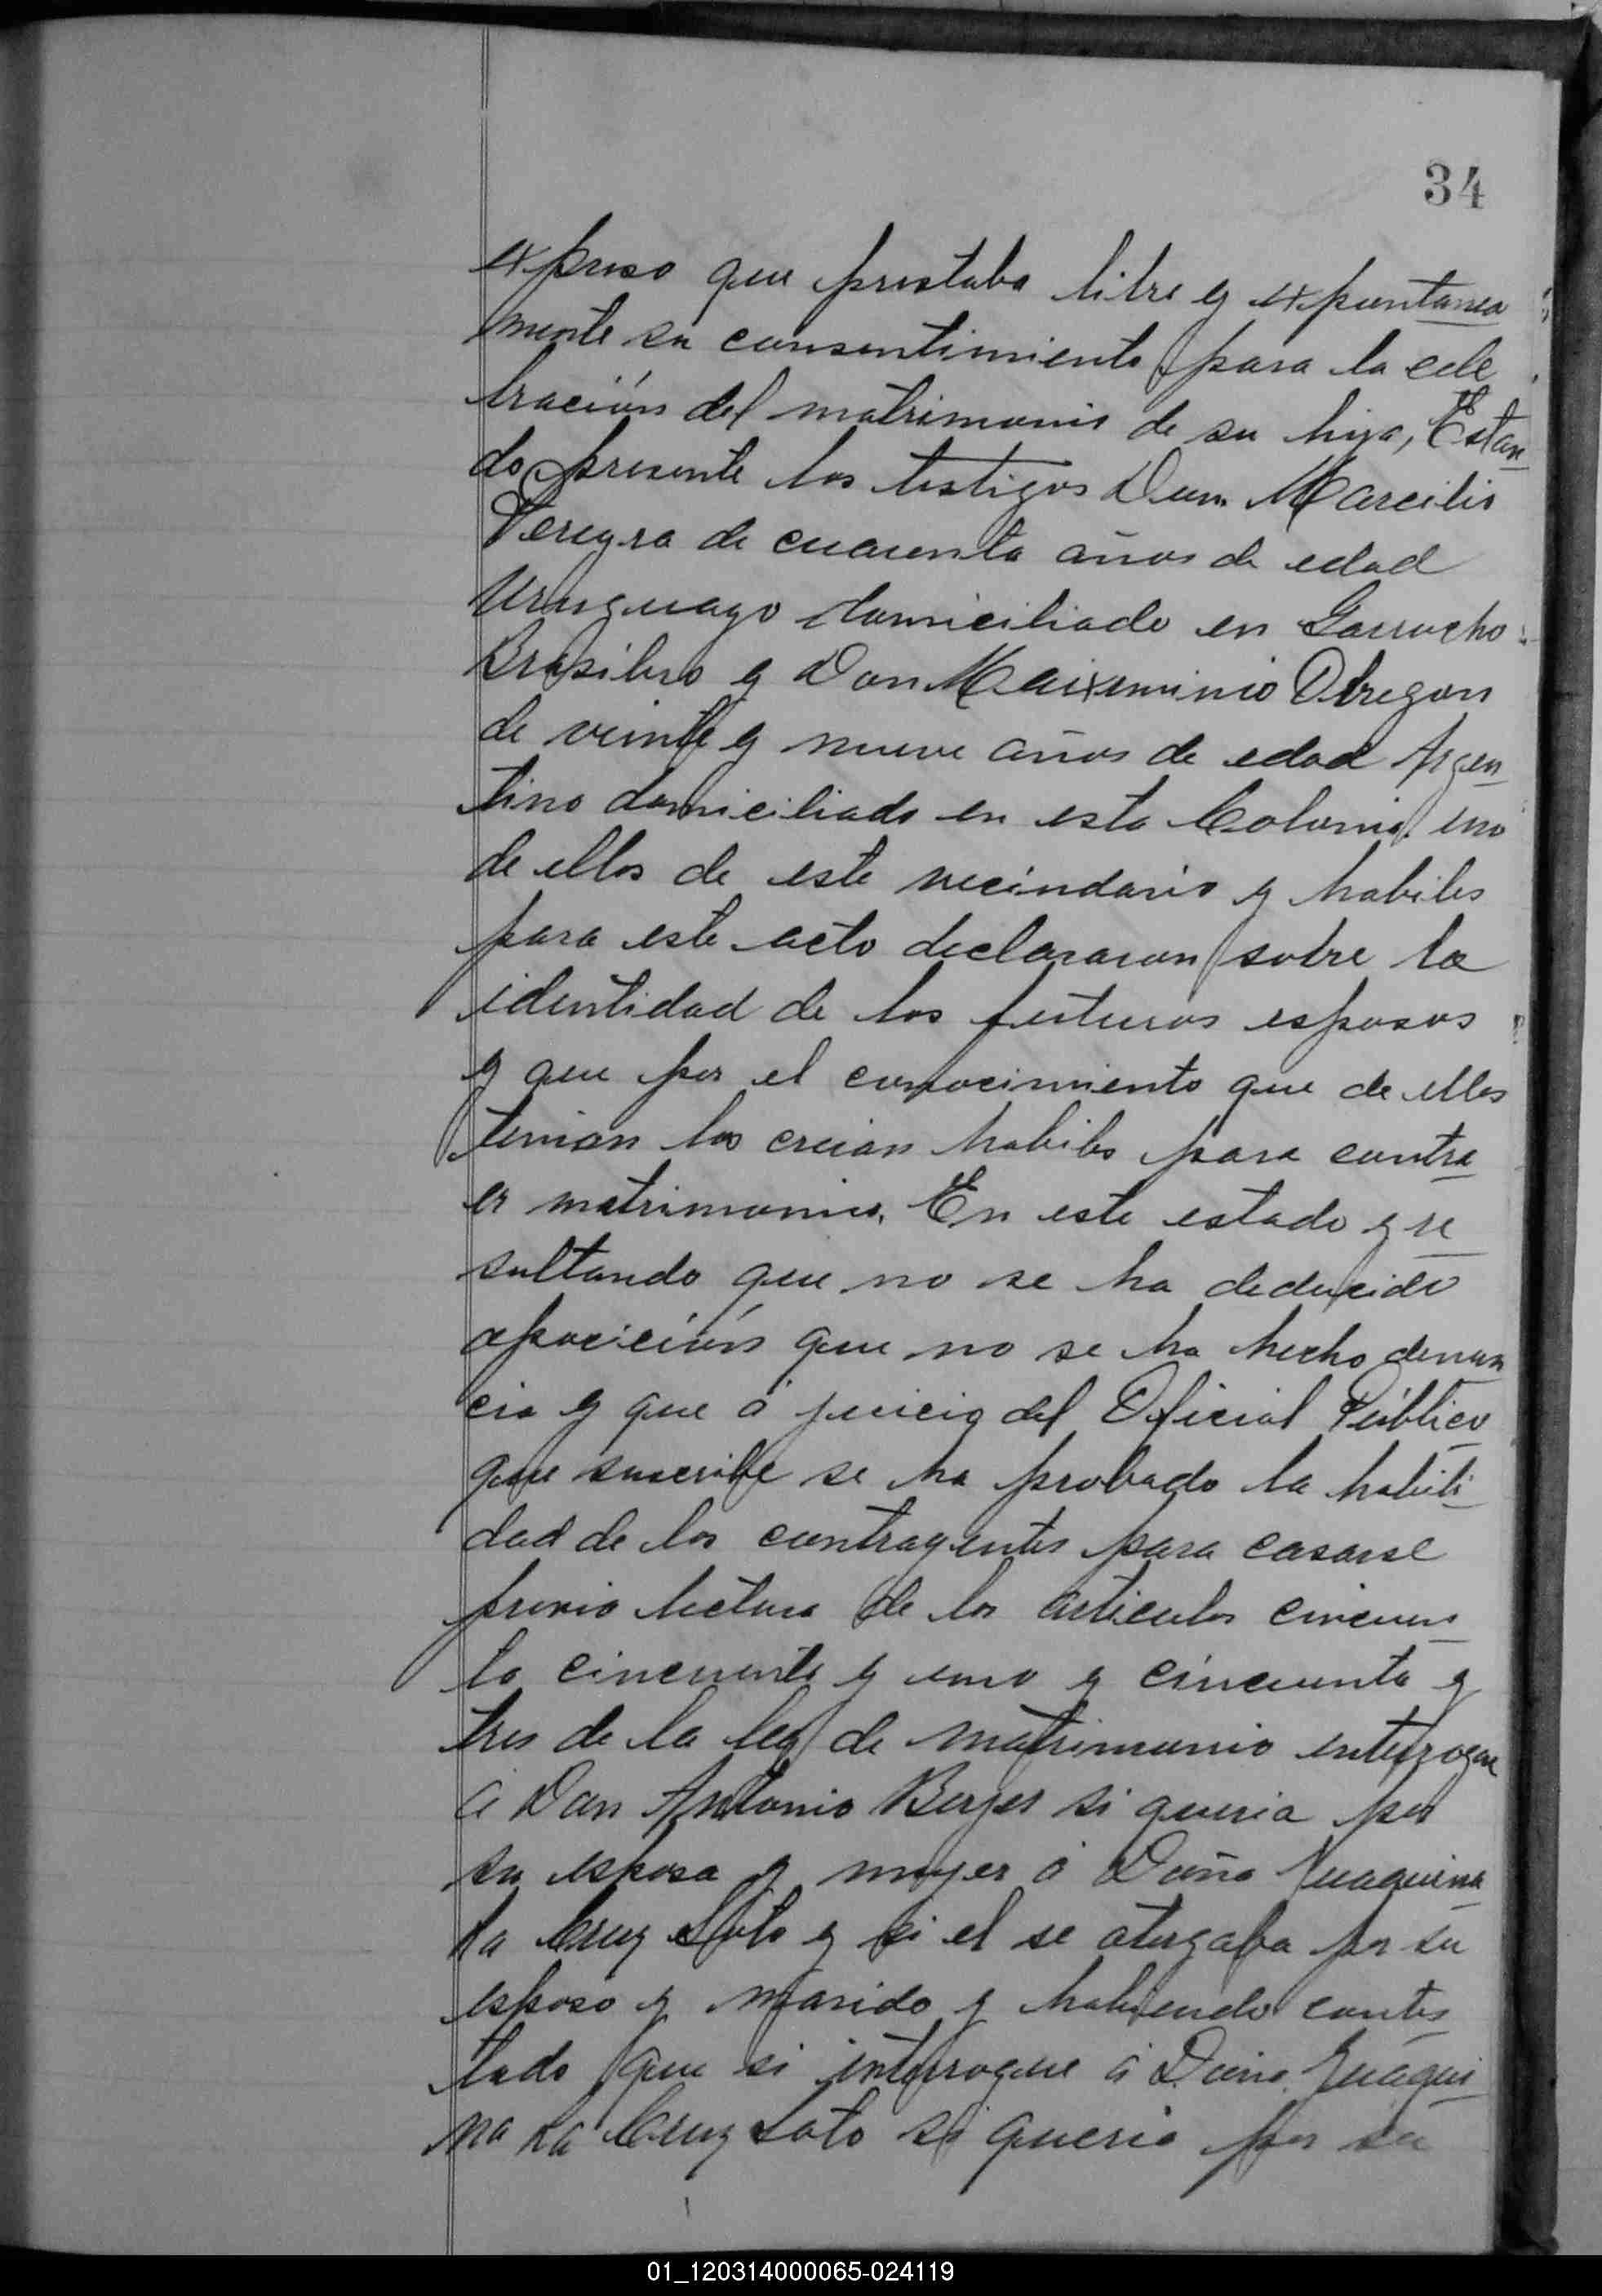 34
expuso que prestaba libre y expontanea
mente su consentimiento para la cele
bración del matrimonio de su hija, Estan
do presente los testigos Don Marcilio
Pereyra de cuarenta años de edad
Uruguayo domiciliado en Garrucho
Brasilero y Don Maixeminio Obregon
de veinte y nueve años de edad Argen
tino domiciliado en esta Colonia uno
de ellos de este vecindario y habiles
para este acto declararon sobre la
identidad de los futuros esposos
y que por el conocimiento que de ellos
tenian los creian habiles para contra
er matrimonio. En este estado y re
sultando que no se ha deducido
oposición que no se ha hecho denun
cia y que á juicio del Oficial Público
que suscribe se ha probado la habili
dad de los contrayentes para casarse
previo lectura de los articulos cincuen
ta cincuenta y uno y cincuenta y
tres de la ley de matrimonio interrogue
á Don Antonio Borjes si queria por
su esposa y mujer á Doña Juaquina
La Cruz Soto y si el se otorgaba por su
esposo y marido y habiendo contes
tado que si interrogue á Doña Juaqui
na La Cruz Soto si queria por su
01_120314000065-024119